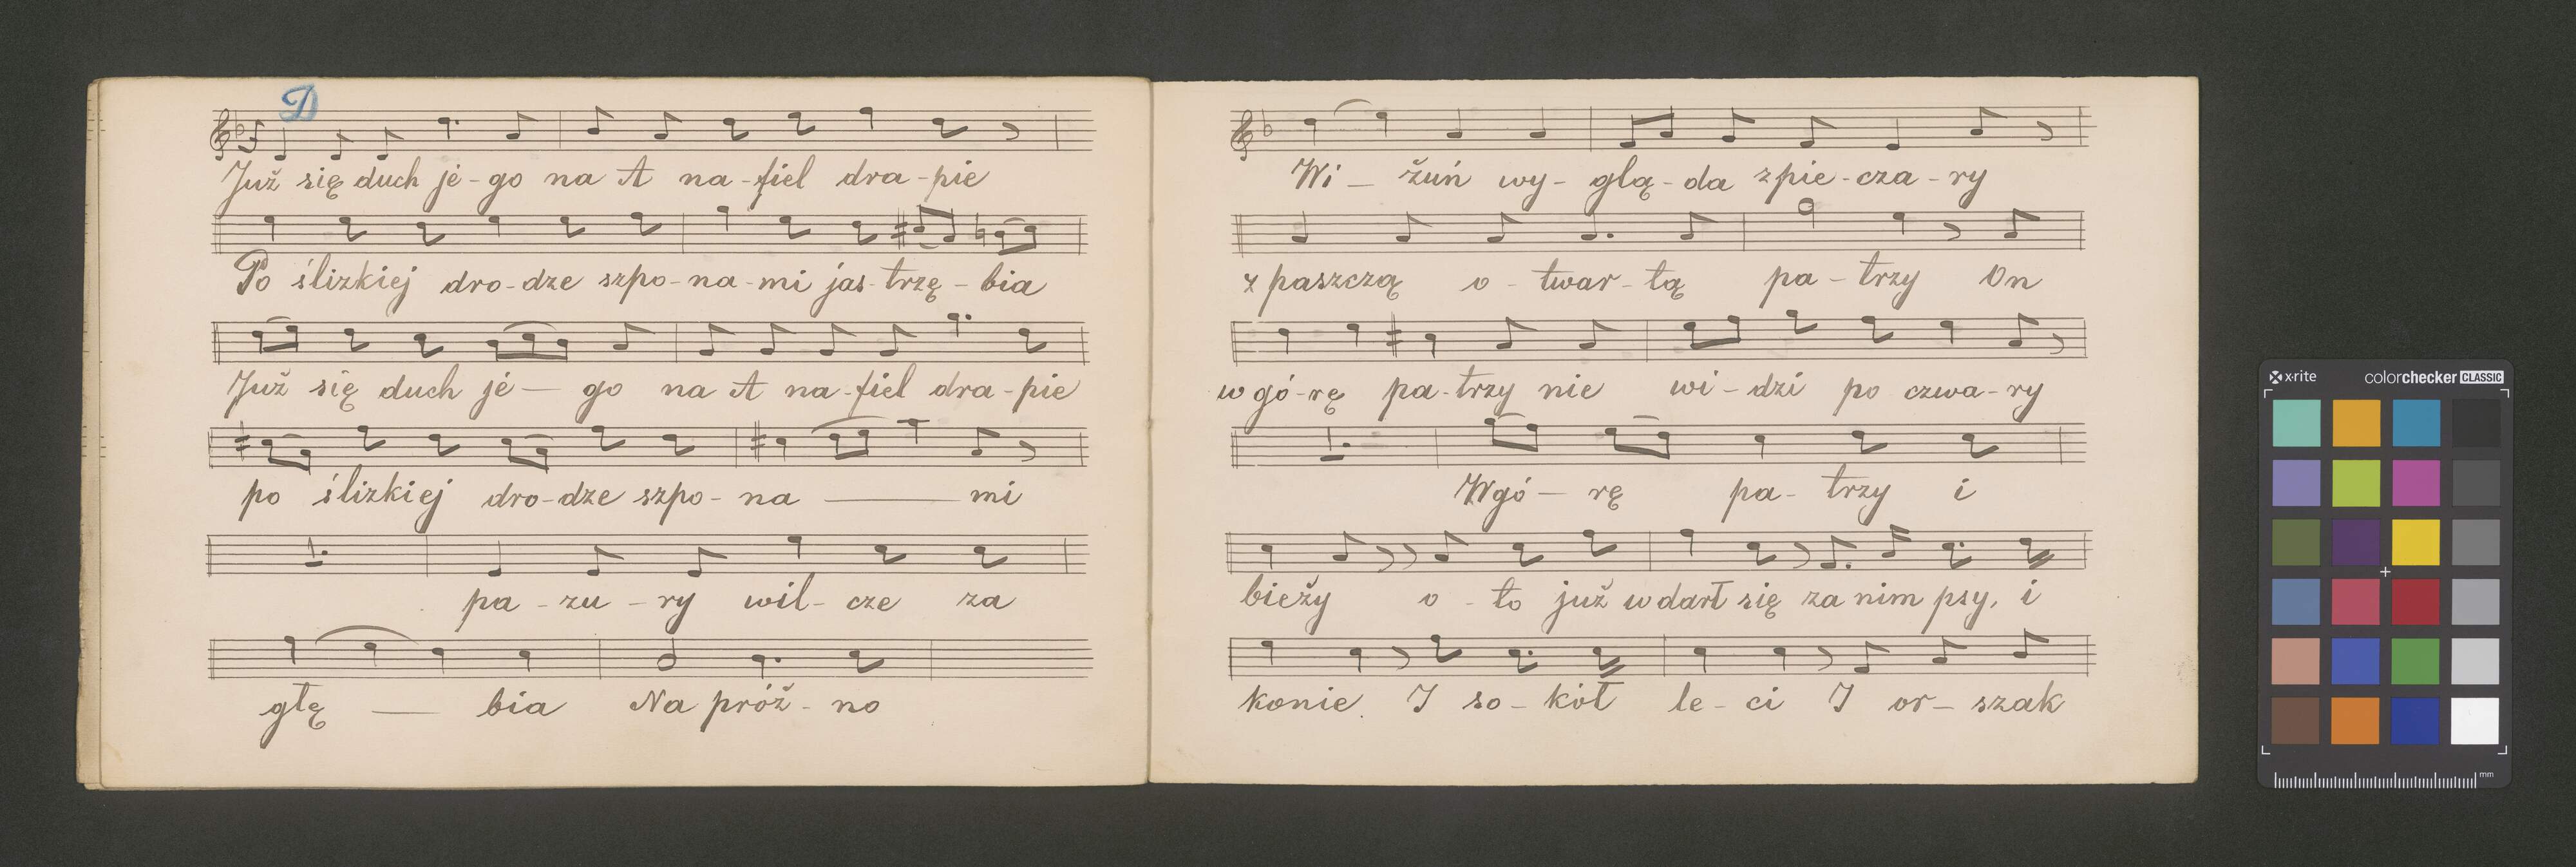 D
Już się duch je-go na A na-fiel dra-pie
Po ślizkiej dro-dze szpo-na-mi jas-trzę-bia
Już się duch je— go na A na-fiel dra-pie
po ślizkiej dro-dze szpo-na — mi
pa-zu-ry wil-cze za
głę — bia Na próż-no
Wi — żuń wy-glą-da z pie-cza-ry
z paszczą o-twar-tą pa-trzy On
w gó-rę pa-trzy nie wi-dzi po czwa-ry
W gó— rę pa-trzy i
bieży o-to już w darł się za nim psy, i
konie. I so-kół le-ci I or-szak
x-rite colorchecker CLASSIC
mm